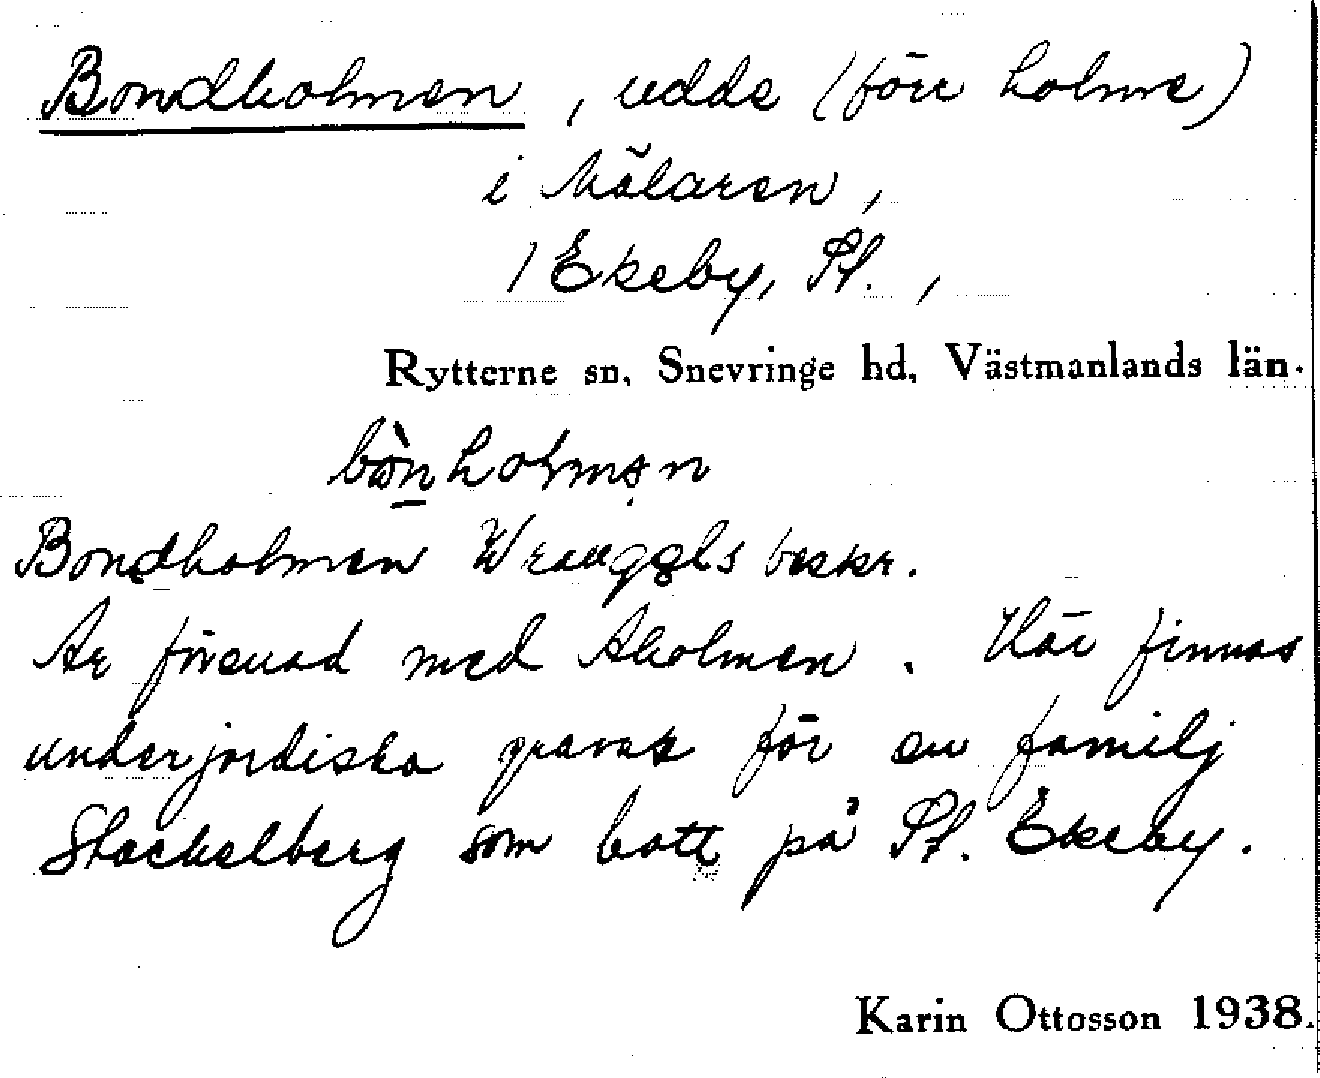 Bondholmen, udde (förr holme)
i Mälaren,
/ Ekeby, St.,
Rytterne sn, Snevringe hd, Västmanlands län.
bònholmən
Bondholmen Wrangels beskr.
Är förenad med Aholmen. Här finnas
underjordiska gravar för en familj
Stackelberg som bott på St. Ekeby.
Karin Ottosson 1938.